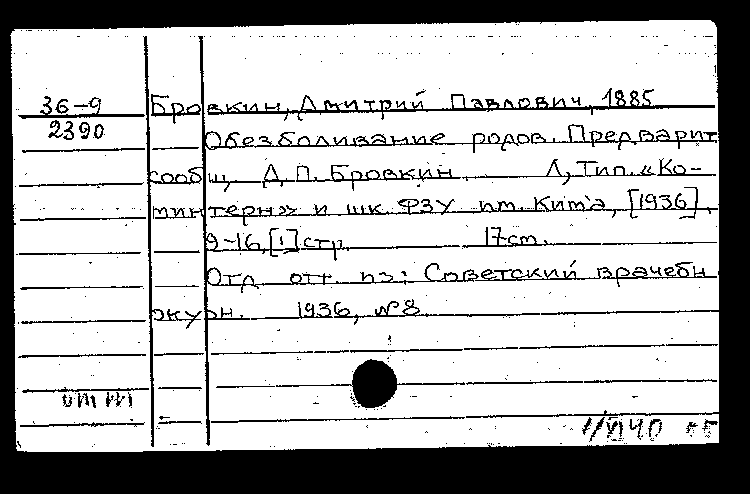 36-9
2390
Бровкин, Дмитрий Павлович, 1885
Обезболивание родов. Предварит
сообщ, Д.П. Бровкин. Л, Тип. «Ко-
минтерн» и шк. ФЗУ им. Ким'а, [1936].
9-16, [1] стр. 17 см.
Отд. отт. из: Советский врачебн
журн. 1936, №8.
1/VI 40